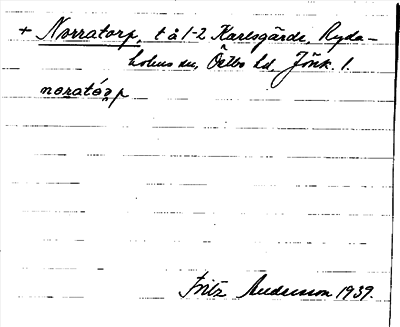 + Norratorp, t å 1-2 Karlsgärde, Ryda-
holms sn, Östbo hd, Jönk. l.
noratórp
Fritz Andersson 1939.